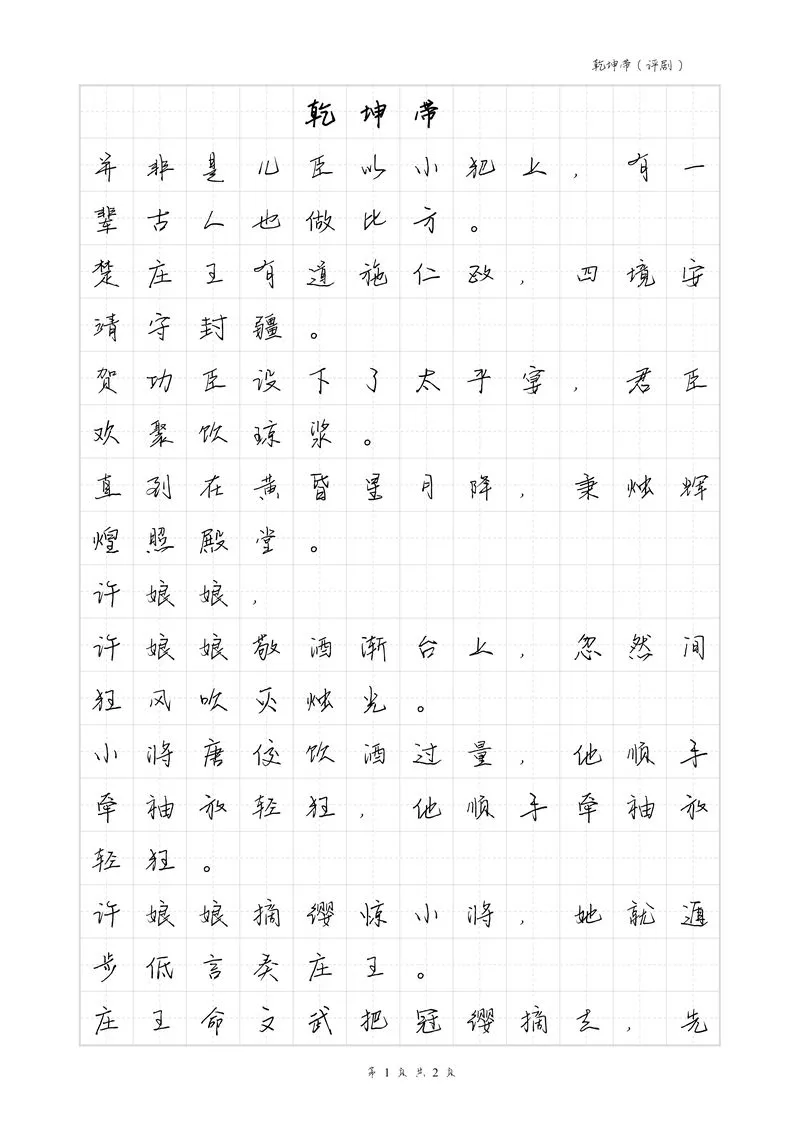 乾坤带（评剧）
乾坤带
并非是儿臣以小犯上，有一
辈古人也做比方。
楚庄王有道施仁政，四境安
靖守封疆。
贺功臣设下了太平宴，君臣
欢聚饮琼浆。
直到在黄昏星月降，秉烛辉
煌照殿堂。
许娘娘，
许娘娘敬酒渐台上，忽然间
狂风吹灭烛光。
小将唐佼饮酒过量，他顺手
牵袖放轻狂，他顺手牵袖放
轻狂。
许娘娘摘缨惊小将，她就遁
步低言奏庄王。
庄王命文武把冠缨摘去，先
第1页共2页